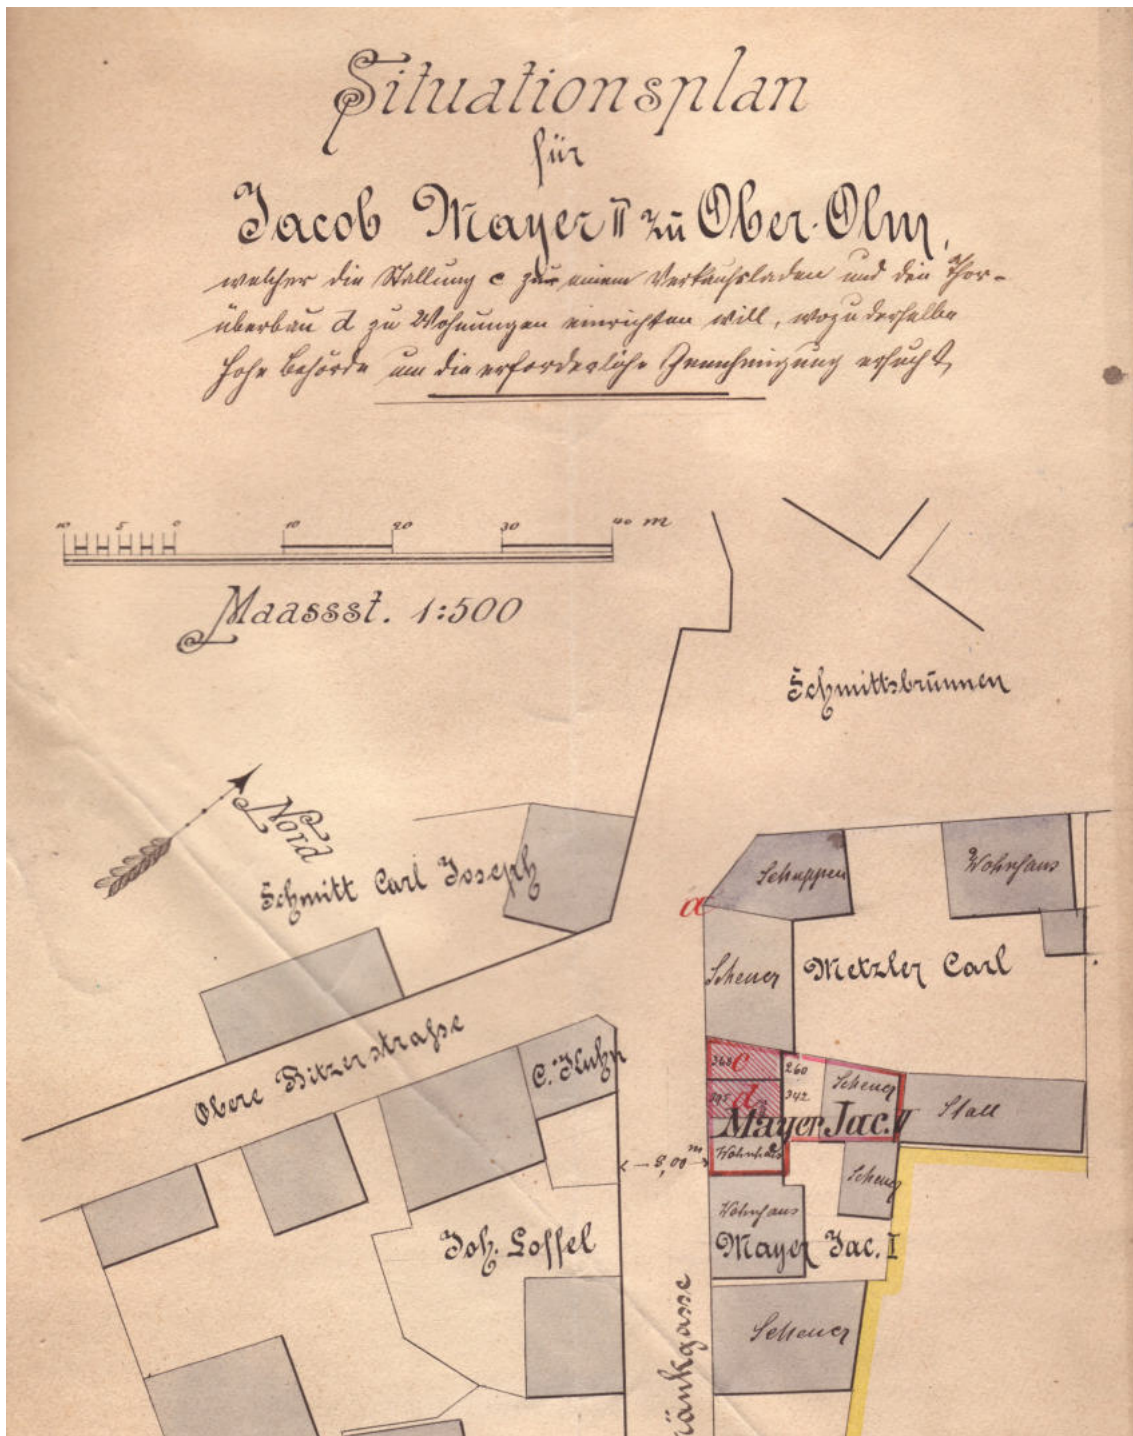 Situationsplan
für
Jacob Mayer II zu Ober-Olm,
welcher die Stallung c zu einem Verkaufsladen und den Thor-
überbau d zu Wohnungen einrichten will, wozu derselbe
hohe Behörde um die erforderliche Genehmigung ersucht,
10 5 0 10 20 30 40 m
Maassst. 1:500
Schmittsbrunnen
Nord
Schmitt Carl Joseph
Schuppen
Wohnhaus
a
Scheuer
Metzler Carl
Obere Pitzerstraße
368 c
260
Scheuer
d
342
Stall
Mayer Jac. II
Wohnhaus
8,00 m
Scheuer
Wohnhaus
Mayer Jac. I
Joh. Loffel
Scheuer
änkgasse